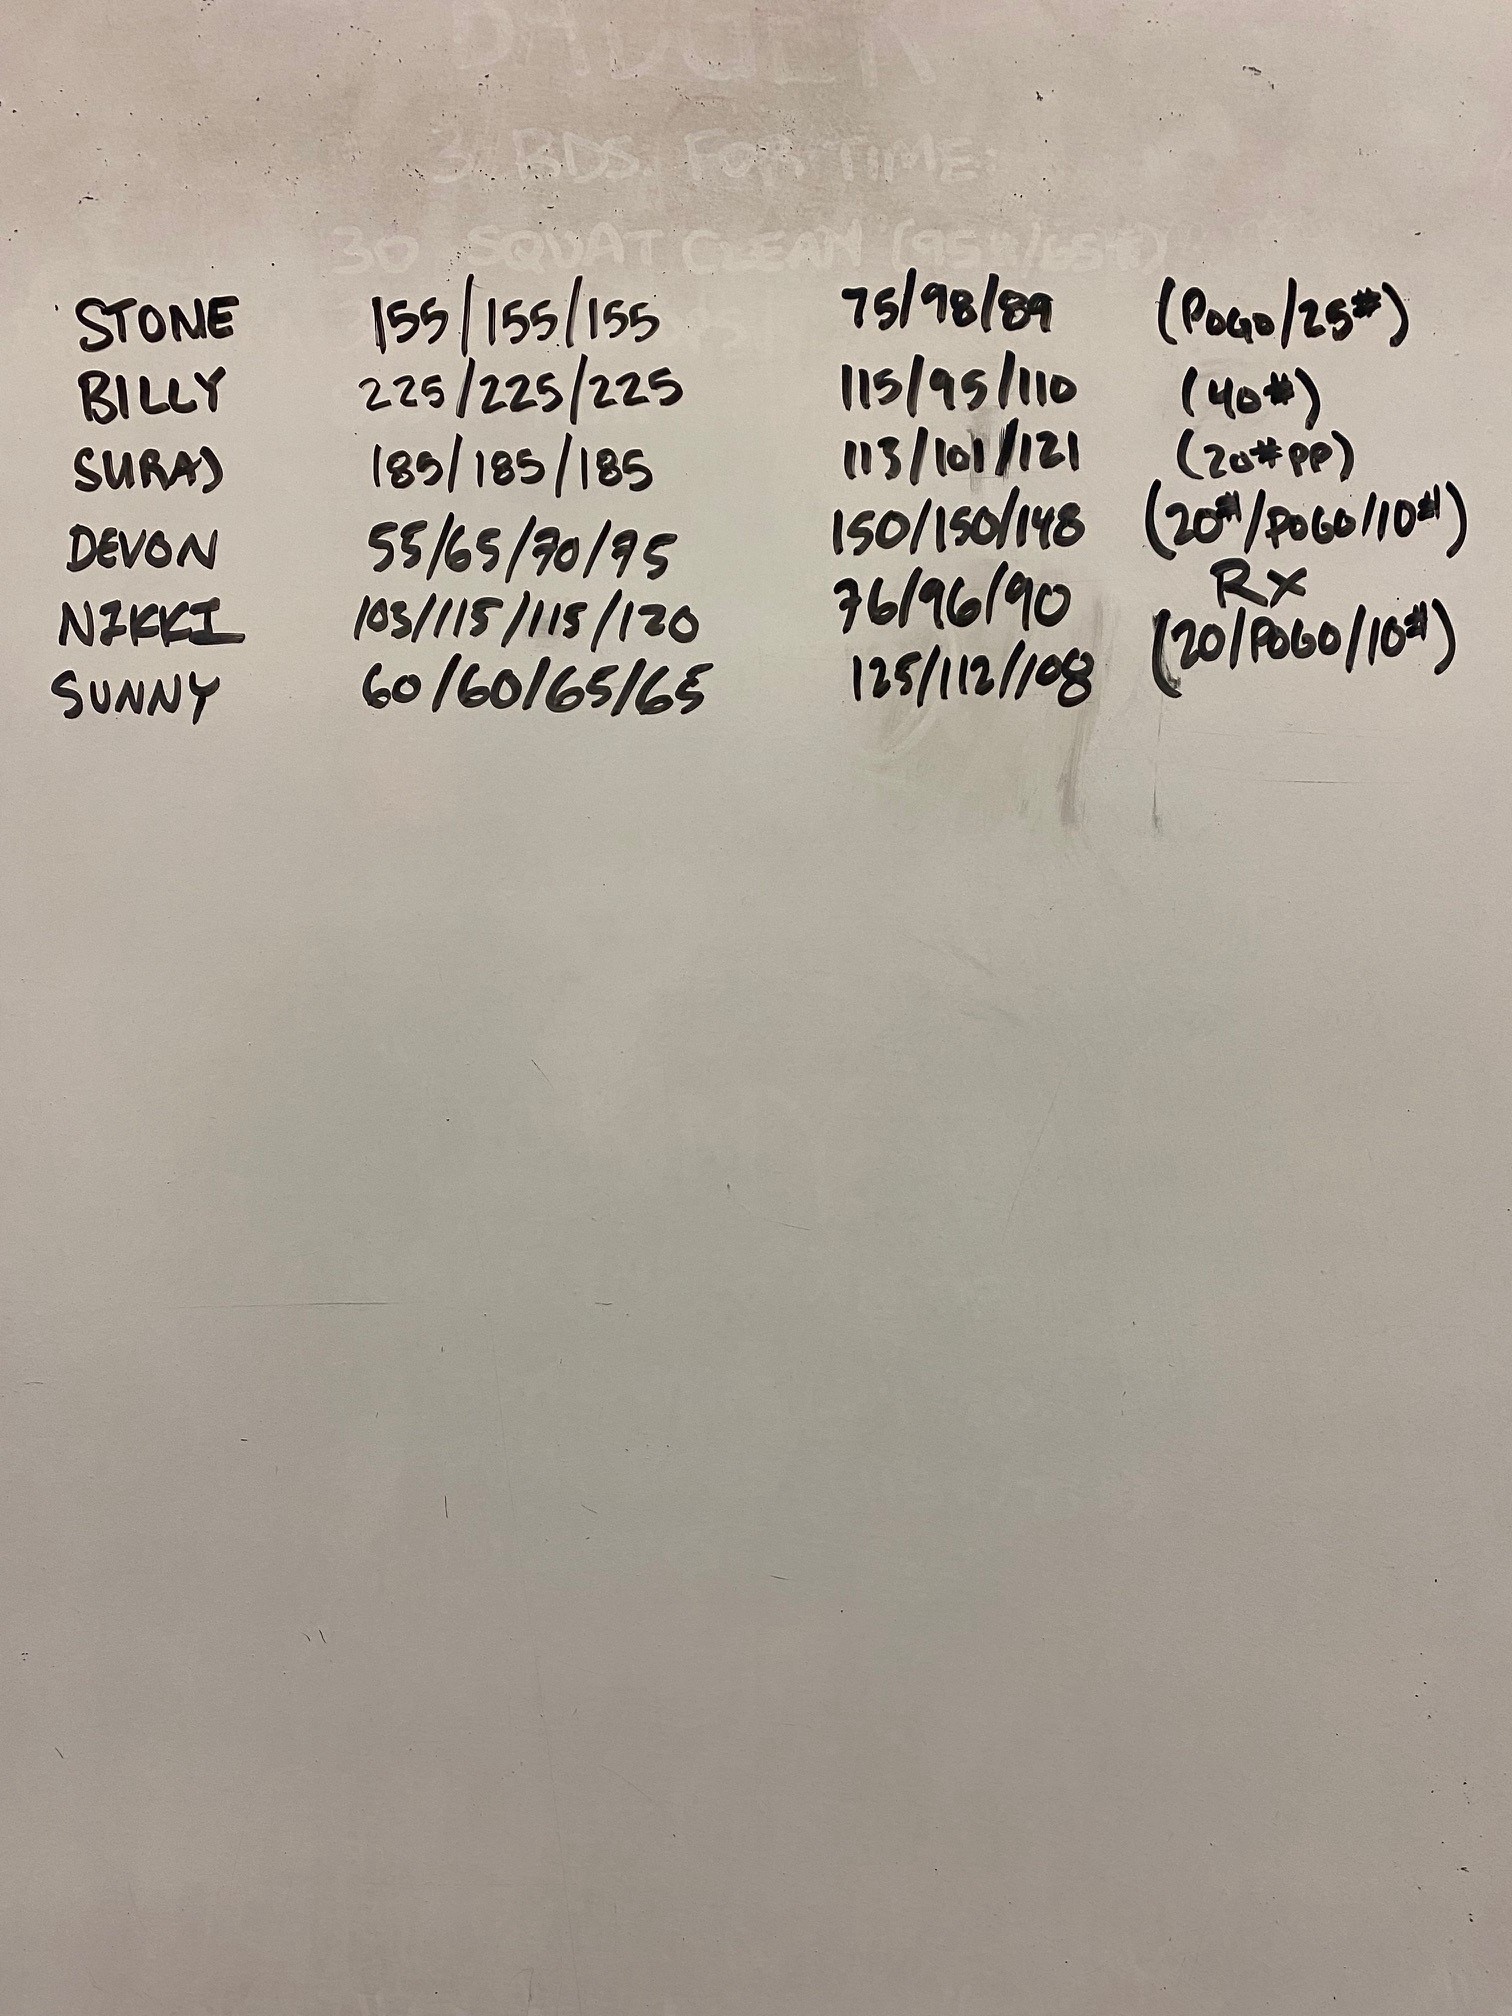 3 RDS. FOR TIME:
30 SQUAT CLEAN (95#/65#)
STONE 155/155/155 75/98/89 (POGO/25#)
BILLY 225/225/225 115/95/110 (40#)
SURAJ 185/185/185 113/101/121 (20# PP)
DEVON 55/65/70/75 150/150/148 (20#/POGO/10#)
NIKKI 103/115/115/120 76/96/90 RX
SUNNY 60/60/65/65 125/112/108 (20/POGO/10#)